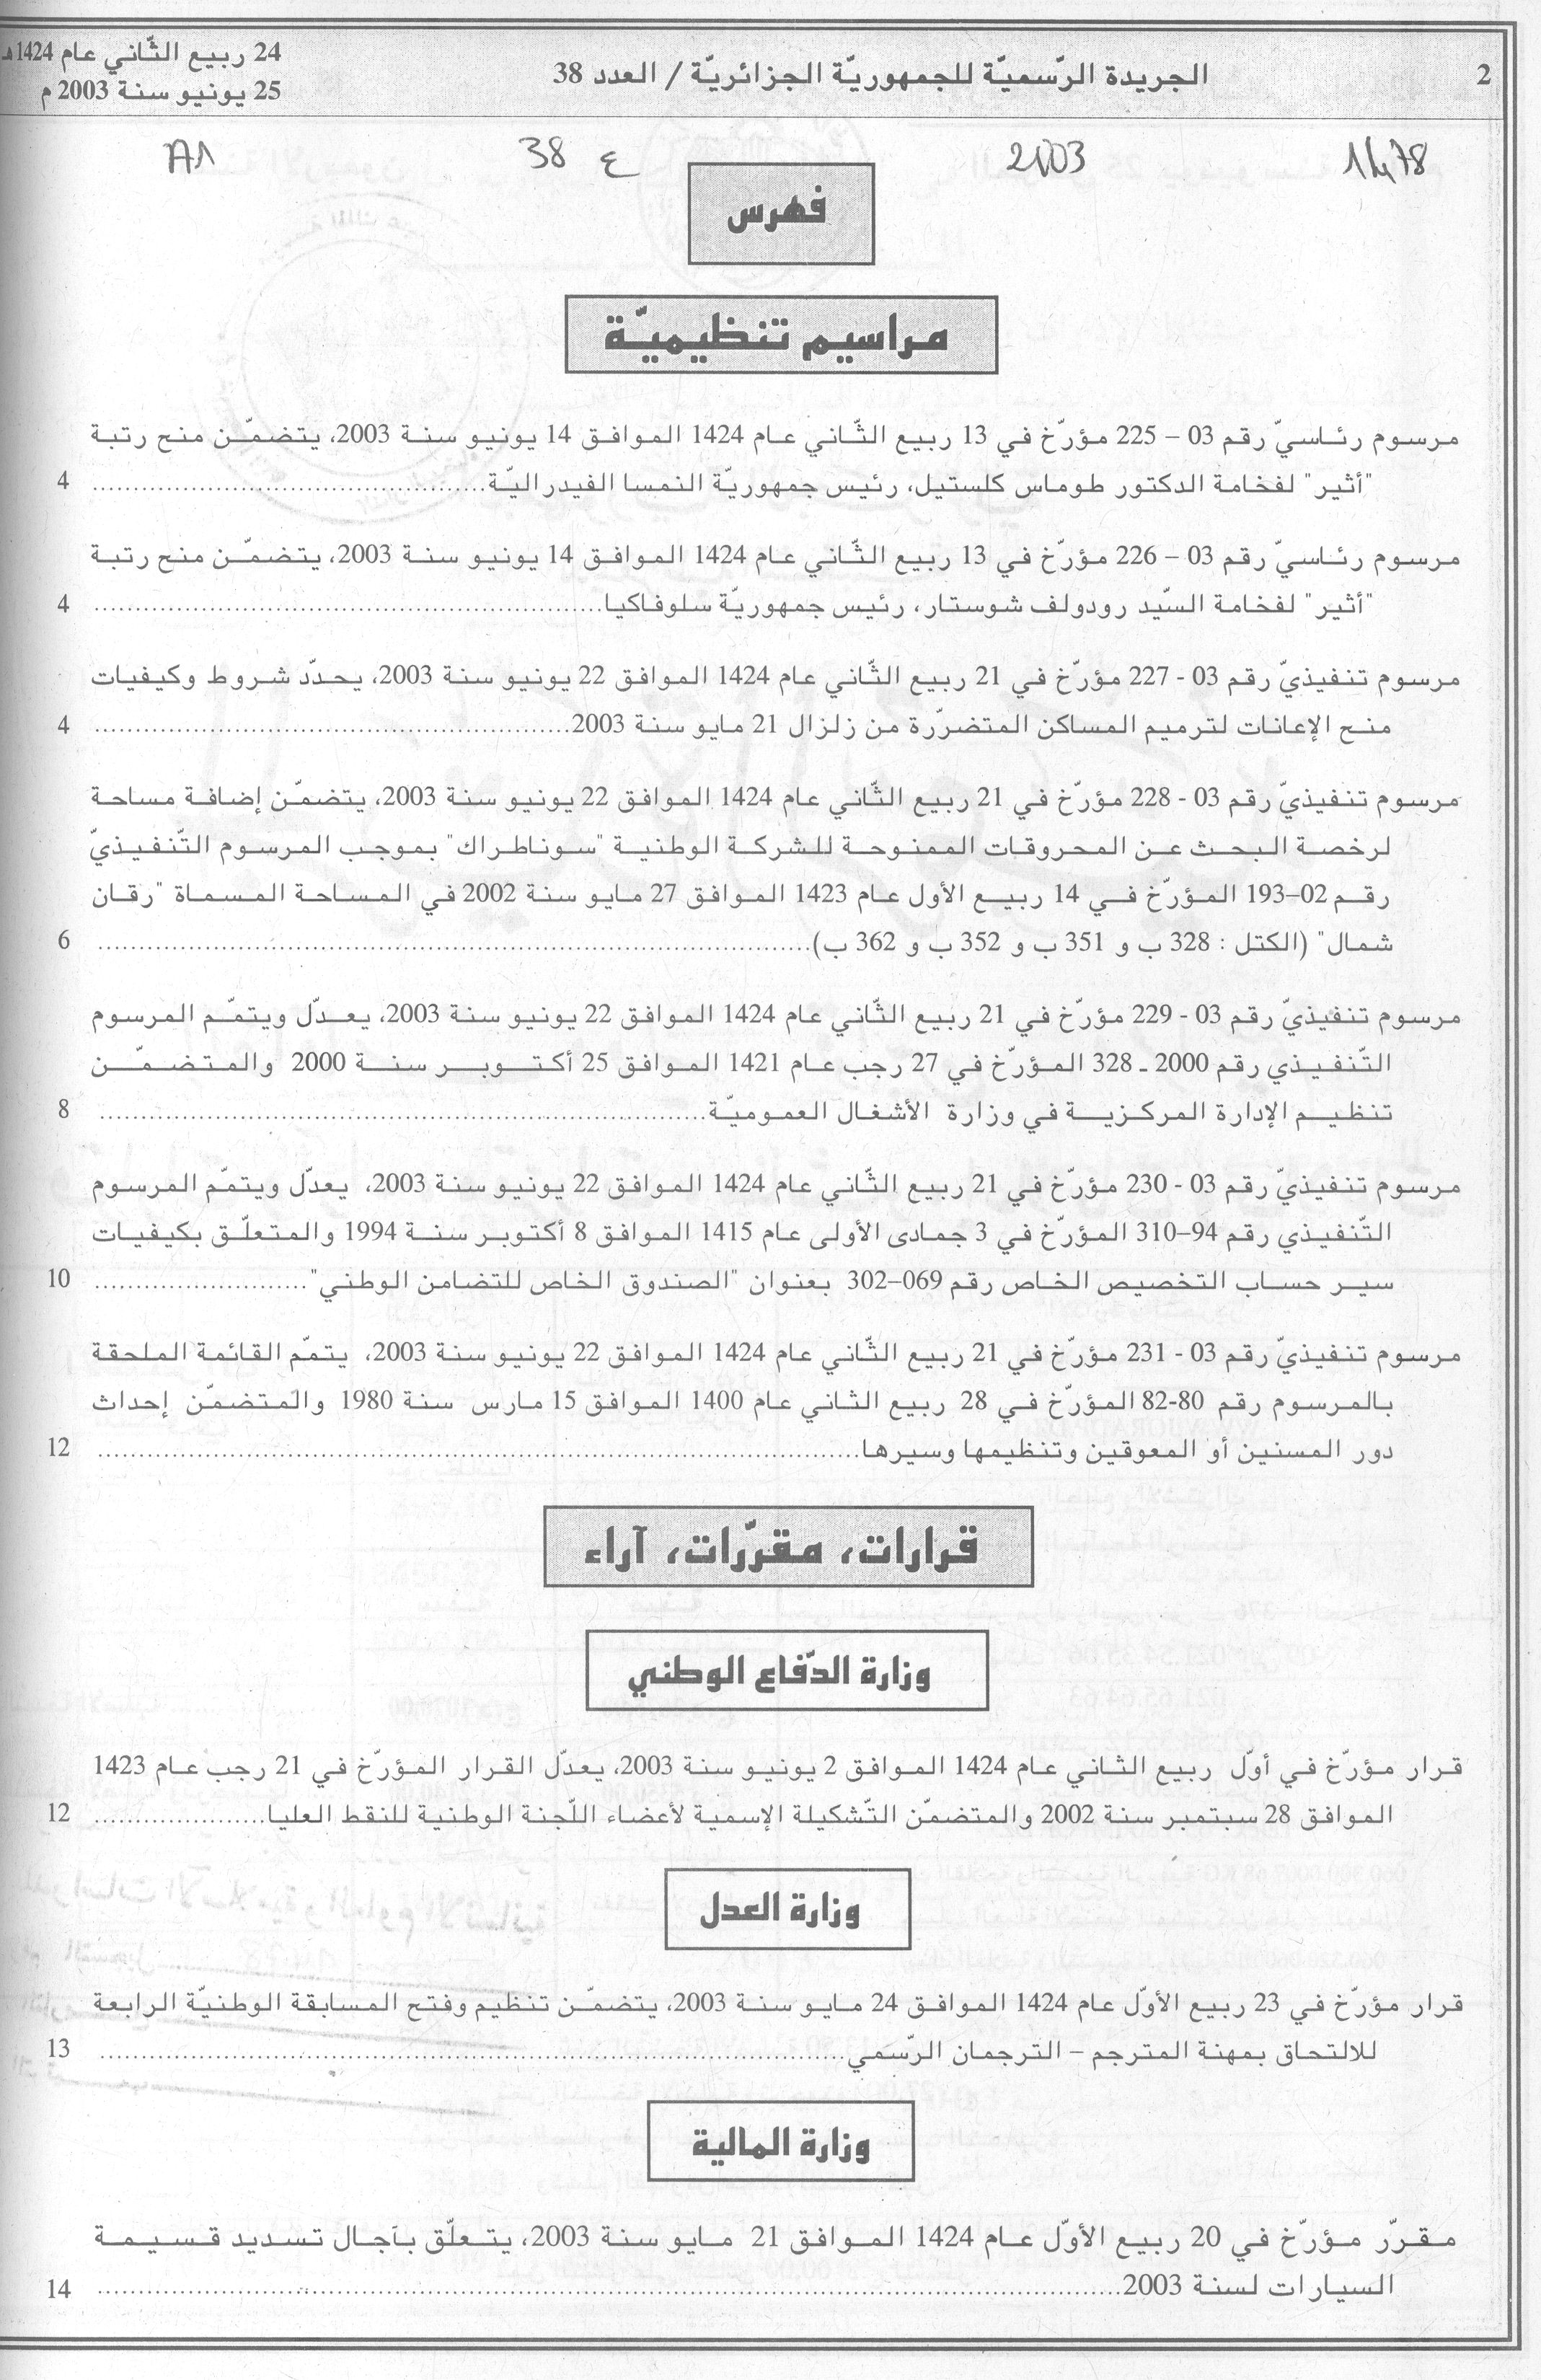 2
الجريدة الرّسميّة للجمهوريّة الجزائريّة / العدد 38
24 ربيع الثّاني عام 1424هـ
25 يونيو سنة 2003 م
1478
2003
ع 38
A1
فهرس
مراسيم تنظيميّة
مرسوم رئاسيّ رقم 03 – 225 مؤرّخ في 13 ربيع الثّاني عام 1424 الموافق 14 يونيو سنة 2003، يتضمّن منح رتبة
"أثير" لفخامة الدكتور طوماس كلستيل، رئيس جمهوريّة النمسا الفيدراليّة 4
مرسوم رئاسيّ رقم 03 – 226 مؤرّخ في 13 ربيع الثّاني عام 1424 الموافق 14 يونيو سنة 2003، يتضمّن منح رتبة
"أثير" لفخامة السيّد رودولف شوستار، رئيس جمهوريّة سلوفاكيا 4
مرسوم تنفيذيّ رقم 03 - 227 مؤرّخ في 21 ربيع الثّاني عام 1424 الموافق 22 يونيو سنة 2003، يحدّد شروط وكيفيات
منح الإعانات لترميم المساكن المتضرّرة من زلزال 21 مايو سنة 2003 4
مرسوم تنفيذيّ رقم 03 - 228 مؤرّخ في 21 ربيع الثّاني عام 1424 الموافق 22 يونيو سنة 2003، يتضمّن إضافة مساحة
لرخصة البحث عن المحروقات الممنوحة للشركة الوطنية "سوناطراك" بموجب المرسوم التّنفيذيّ
رقم 02–193 المؤرّخ في 14 ربيع الأول عام 1423 الموافق 27 مايو سنة 2002 في المساحة المسماة "رقان
شمال" (الكتل : 328 ب و 351 ب و 352 ب و 362 ب) 6
مرسوم تنفيذيّ رقم 03 - 229 مؤرّخ في 21 ربيع الثّاني عام 1424 الموافق 22 يونيو سنة 2003، يعدّل ويتمّم المرسوم
التّنفيذي رقم 2000 ـ 328 المؤرّخ في 27 رجب عام 1421 الموافق 25 أكتوبر سنة 2000 والمتضمّن
تنظيم الإدارة المركزية في وزارة الأشغال العموميّة 8
مرسوم تنفيذيّ رقم 03 - 230 مؤرّخ في 21 ربيع الثّاني عام 1424 الموافق 22 يونيو سنة 2003، يعدّل ويتمّم المرسوم
التّنفيذي رقم 94–310 المؤرّخ في 3 جمادى الأولى عام 1415 الموافق 8 أكتوبر سنة 1994 والمتعلّق بكيفيات
سير حساب التخصيص الخاص رقم 069–302 بعنوان "الصندوق الخاص للتضامن الوطني" 10
مرسوم تنفيذيّ رقم 03 - 231 مؤرّخ في 21 ربيع الثّاني عام 1424 الموافق 22 يونيو سنة 2003، يتمّم القائمة الملحقة
بالمرسوم رقم 80-82 المؤرّخ في 28 ربيع الثاني عام 1400 الموافق 15 مارس سنة 1980 والمتضمّن إحداث
دور المسنين أو المعوقين وتنظيمها وسيرها 12
قرارات، مقرّرات، آراء
وزارة الدّفاع الوطني
قرار مؤرّخ في أوّل ربيع الثاني عام 1424 الموافق 2 يونيو سنة 2003، يعدّل القرار المؤرّخ في 21 رجب عام 1423
الموافق 28 سبتمبر سنة 2002 والمتضمّن التّشكيلة الإسمية لأعضاء اللّجنة الوطنية للنقط العليا 12
وزارة العدل
قرار مؤرّخ في 23 ربيع الأوّل عام 1424 الموافق 24 مايو سنة 2003، يتضمّن تنظيم وفتح المسابقة الوطنيّة الرابعة
للالتحاق بمهنة المترجم – الترجمان الرّسمي 13
وزارة المالية
مقرّر مؤرّخ في 20 ربيع الأوّل عام 1424 الموافق 21 مايو سنة 2003، يتعلّق بآجال تسديد قسيمة
السيارات لسنة 2003 14